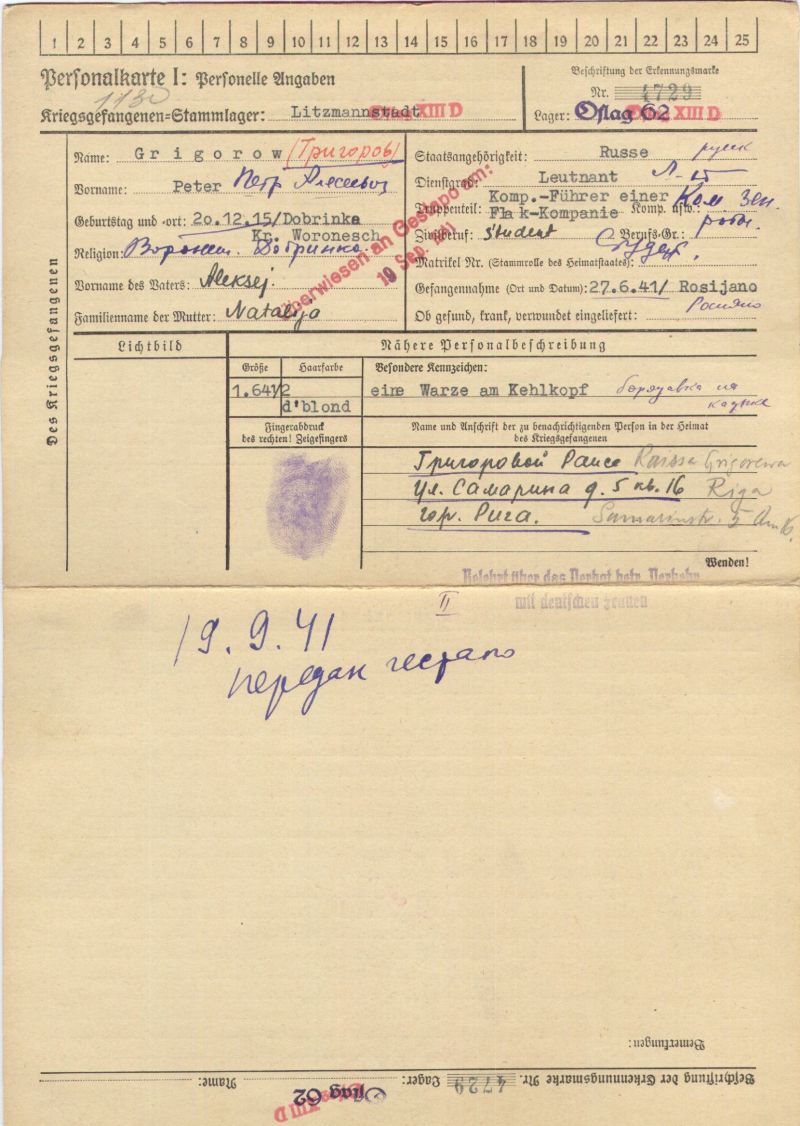 1 2 3 4 5 6 7 8 9 10 11 12 13 14 15 16 17 18 19 20 21 22 23 24 25
Personalkarte I: Personelle Angaben
Beschriftung der Erkennungsmarke
1130
Nr. 4729
Kriegsgefangenen=Stammlager: Litzmannstadt XIII D
Lager: Oflag 62 XIII D
Des Kriegsgefangenen
Name: Grigorow (Григоров)
Vorname: Peter Петр Алексеевич
Geburtstag und =ort: 20.12.15/Dobrinka
Kr. Woronesch
Religion: Воронеж. Добринка.
Vorname des Vaters: Aleksej.
Familienname der Mutter: Natalija
Überwiesen an Gestapo am:
10 Sep. 1941
Staatsangehörigkeit: Russe русск
Dienstgrad: Leutnant Л-т
Truppenteil: Komp.-Führer einer Flak-Kompanie Komp. usw.: Ком зен. роты.
Zivilberuf: Student Berufs=Gr.: Студент.
Matrikel Nr. (Stammrolle des Heimatstaates):
Gefangennahme (Ort und Datum): 27.6.41/ Rosijano
Росияно
Ob gesund, krank, verwundet eingeliefert:
Lichtbild
Nähere Personalbeschreibung
Größe Haarfarbe Besondere Kennzeichen:
1.641/2 d'blond eine Warze am Kehlkopf бородавка на кадыке
Fingerabdruck
des rechten! Zeigefingers
Name und Anschrift der zu benachrichtigenden Person in der Heimat
des Kriegsgefangenen
Григоровой Раисе Raissa Grigorewa
Ул. Самарина д. 5 кв. 16 Riga
гор. Рига. Samarinstr. 5
Wenden!
Belehrt über das Verbot betr. Verkehr
mit deutschen Frauen
II
19.9.41
передан гестапо
Bemerkungen:
Beschriftung der Erkennungsmarke Nr. 4729 Lager: Oflag 62 Name:
XIII D